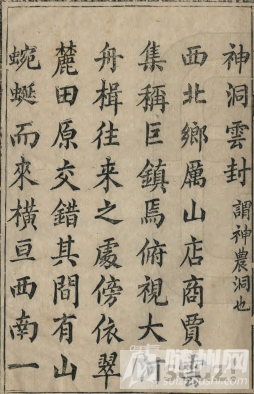 神洞雲封 謂神農洞也
西北鄉厲山店商賈雲
集稱巨鎮焉俯視大河
舟楫往來之處傍依翠
麓田原交錯其間有山
蜿蜒而來橫亘西南一